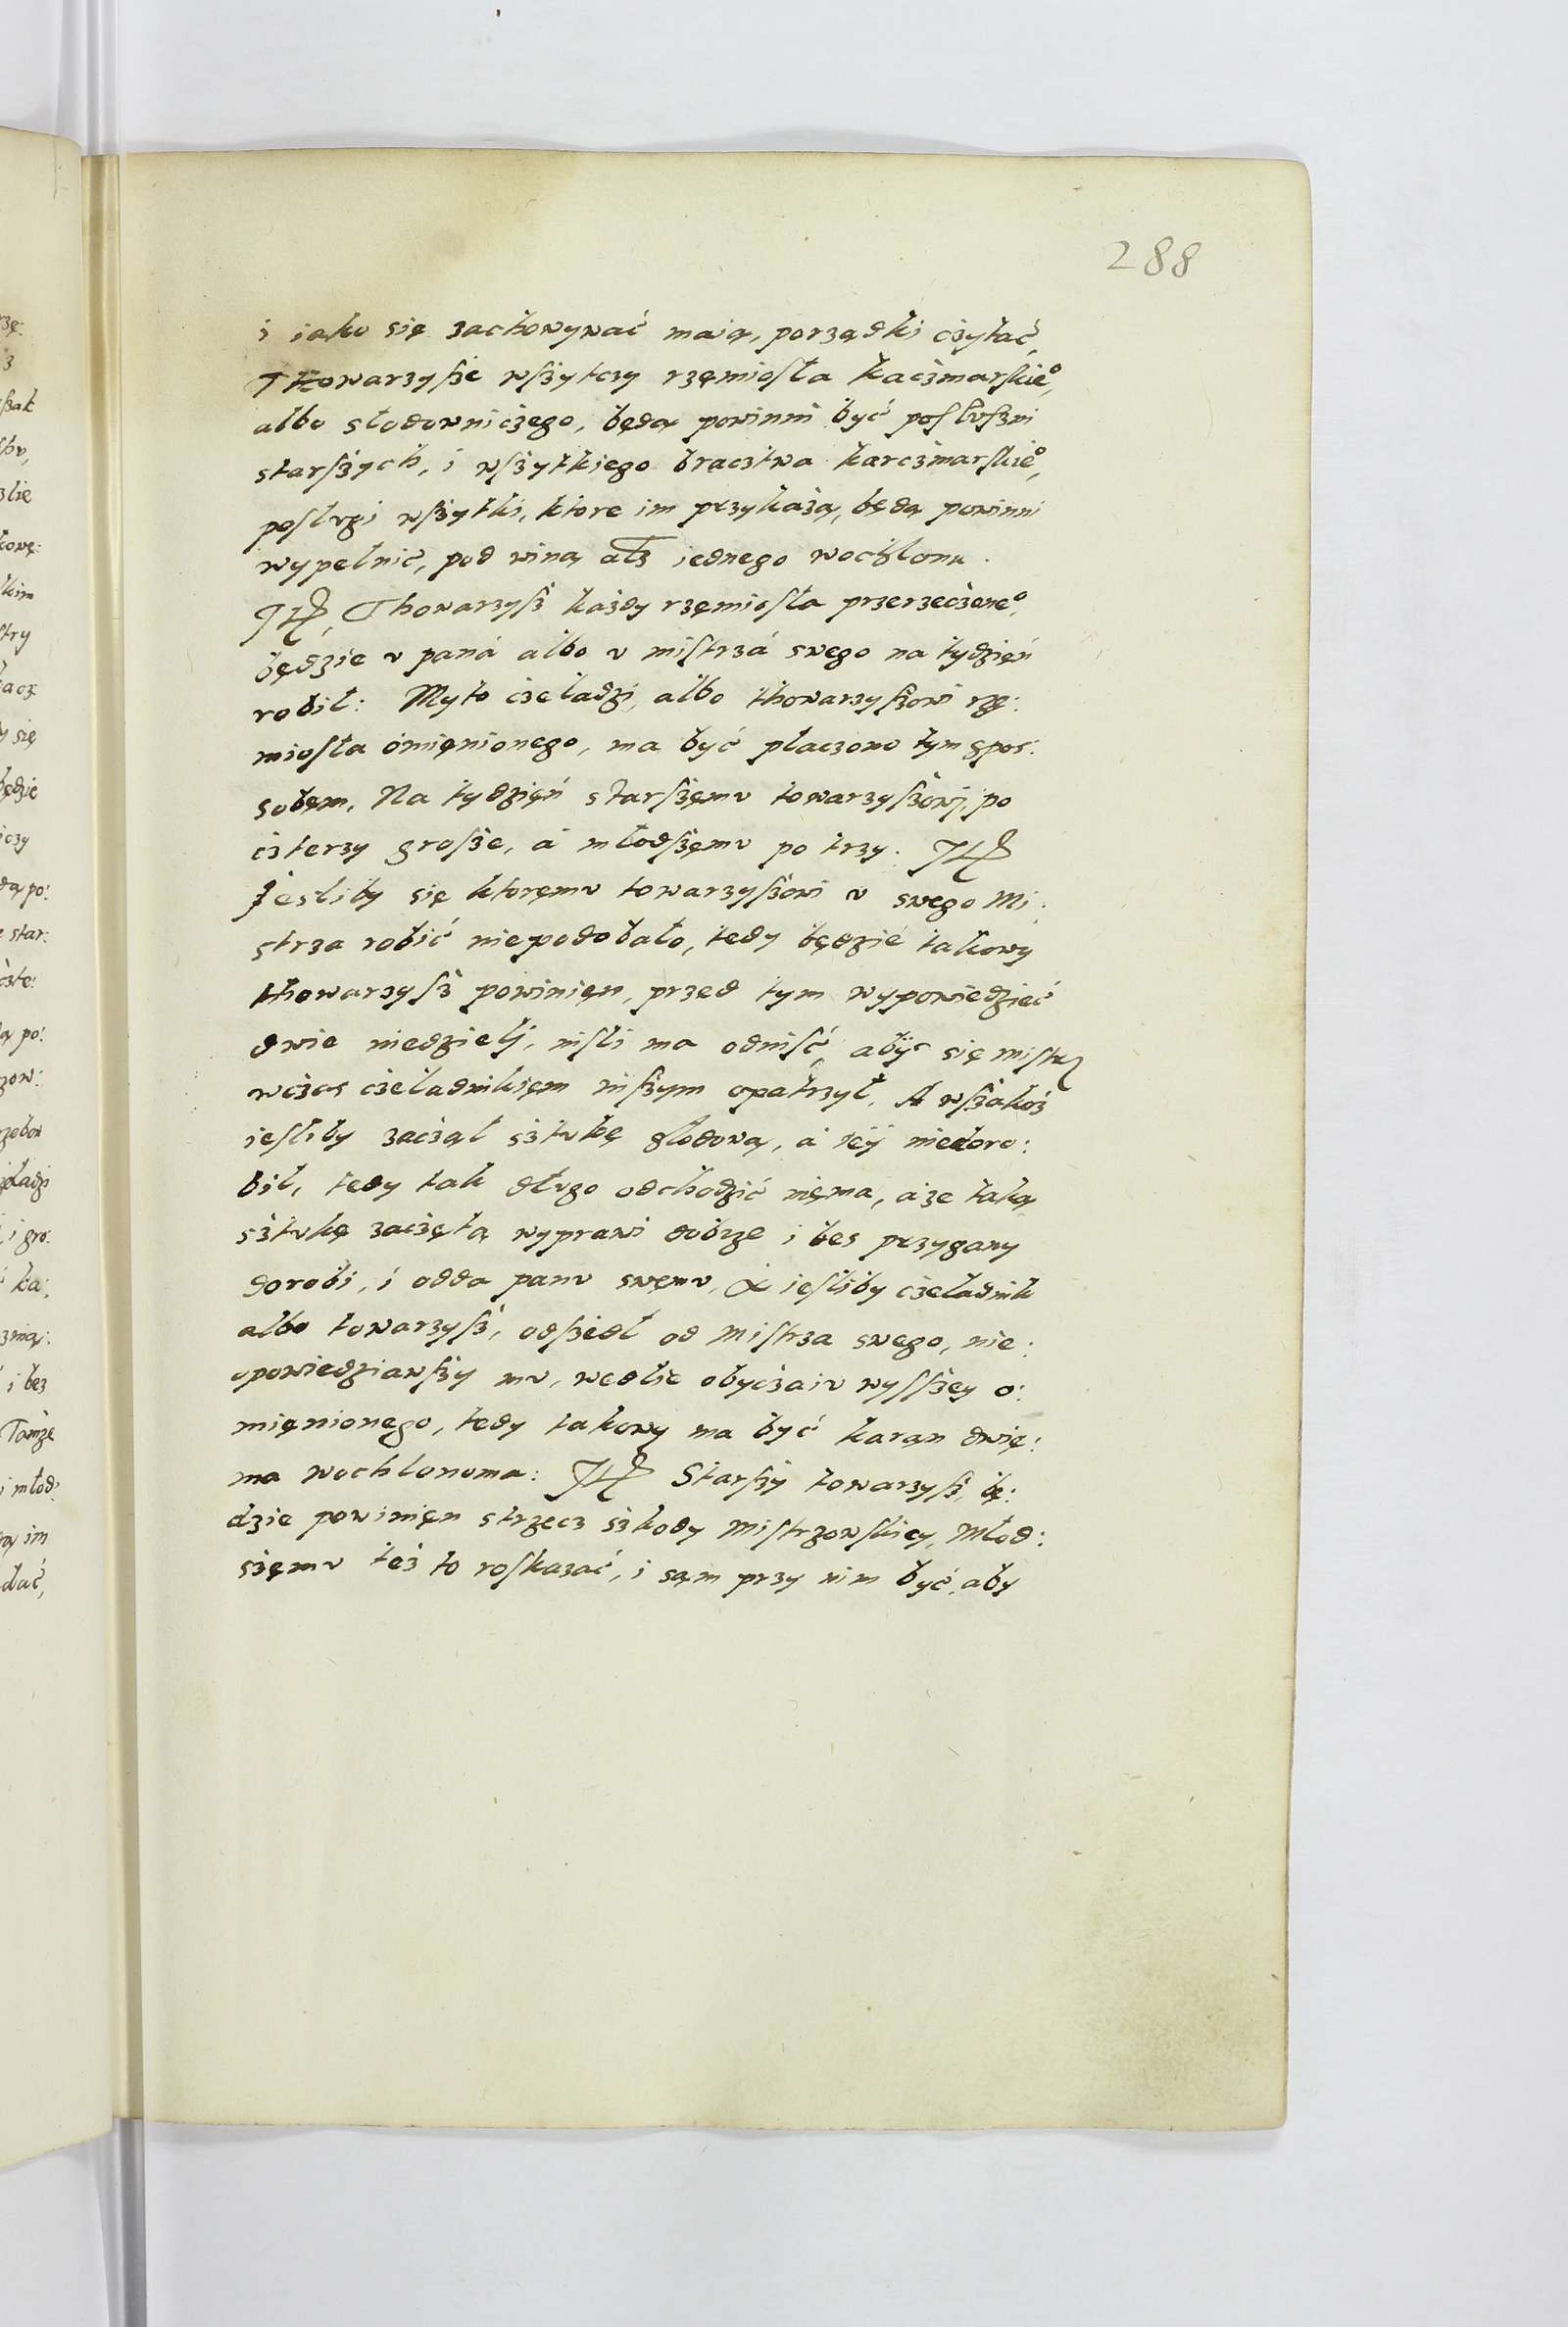 288
i iako się zachowywać maią, porządki cżytać,
Thowarzysże wsżytczy rzęmiosła kacżmarskie°,
albo słodowniczego, będą powinni być poslusżni
starsżych, i wsżytkiego bracztwa karcżmarskie°,
poslugi wsżytki, ktore im przykażą, będą powinni
wypełnić, pod winą alz iednego wochlonu.
Jtē, Thowarzysż każdy rzęmiosła przerzeczone°,
będzie v paná albo v mistrzá swego na tydzięń
robił: Myto cżeladzi, albo thowarzysżowi rzę:
miosła omięnionego, ma być płaczono tym spos:
sobęm, Na tydzięń starsżęmv towarzysżowi, po
cżterzy grosże, á młodsżęmv po trzy. Jtē
Jesliby się ktoręmv towarzysżowi v swego Mi:
strza robić niepodobało, tedy będzie takowy
thowarzysż powinięn, przed tym wypowiedzieć
dwie niedzielÿ, nisli ma odniść, abÿ się mistrz
wcżas cżeladnikięm inszym opatrzył, A wsżakoż
iesliby zacżął sżtvkę słodową, á iéÿ niedoro:
bił, tedy tak długo odchodzić nięma, áże taką
sżtvkę zacżętą wyprawi dobrze i bes przygany
dorobi, i odda panv swęmv, A iesliby cżeladnik
albo towarzysż, odsżedł od Mistrza swego, nie:
opowiedziawsży mv, wedlie obycżaiv wyssżey o:
mięnionego, tedy takowy ma być karąn dwię:
ma wochlonoma: Jtē Starsży towarzysż, bę:
dzie powinięn strzecz sżkody Mistrzowskiey, Młod:
sżęmv też to roskazać, i sąm przy nim być, aby